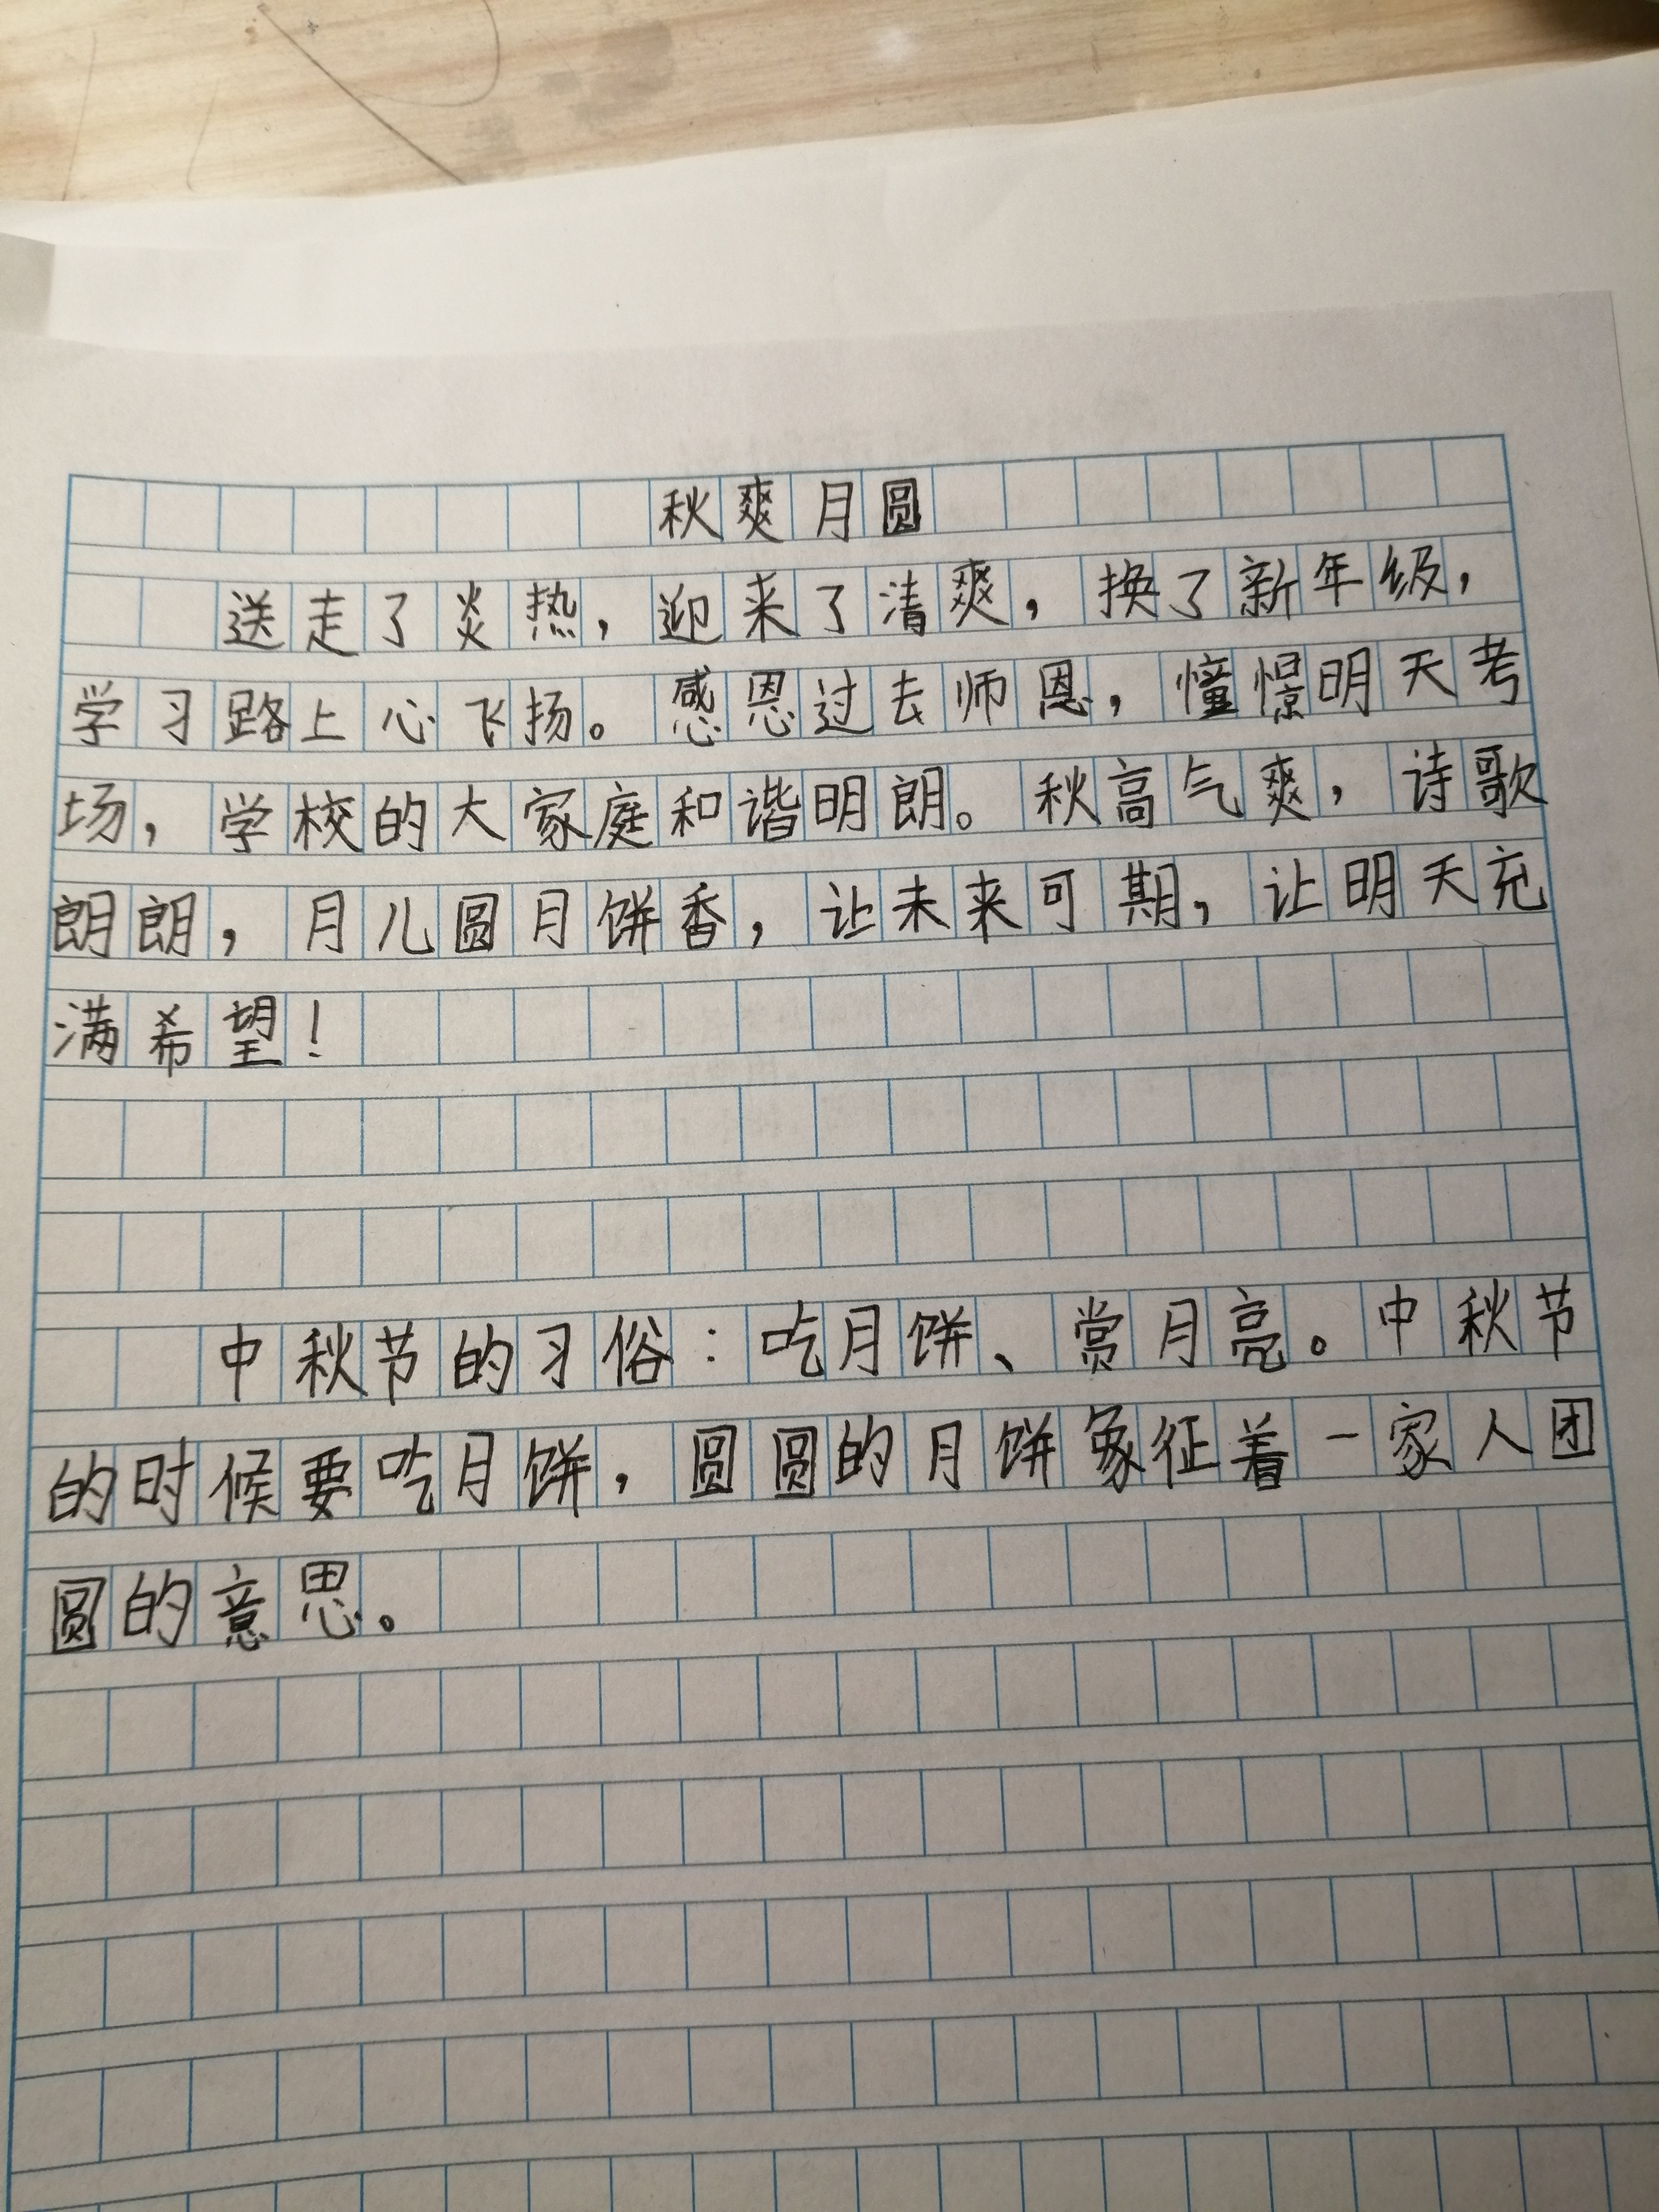 秋爽月圆
送走了炎热，迎来了清爽，换了新年级，
学习路上心飞扬。感恩过去师恩，憧憬明天考
场，学校的大家庭和谐明朗。秋高气爽，诗歌
朗朗，月儿圆月饼香，让未来可期，让明天充
满希望！
中秋节的习俗：吃月饼、赏月亮。中秋节
的时候要吃月饼，圆圆的月饼象征着一家人团
圆的意思。